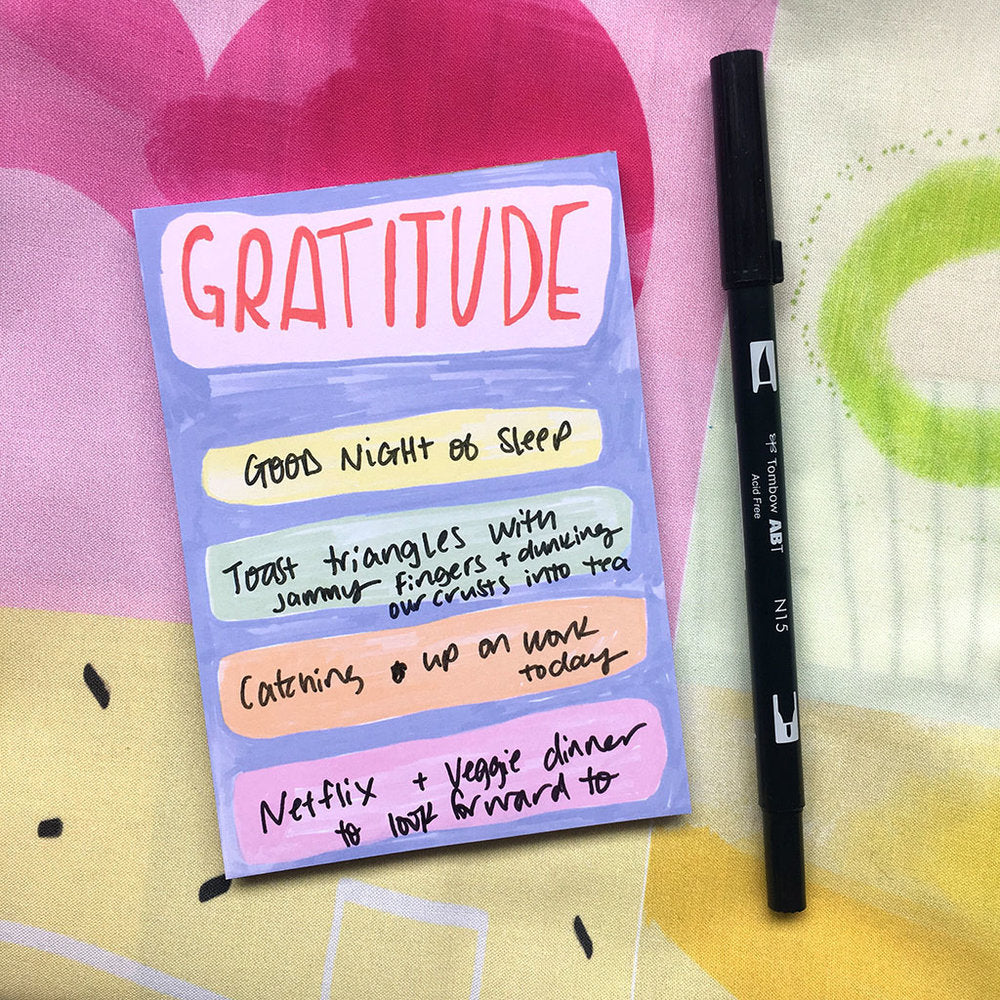 GRATITUDE
GOOD NiGHt of SleeP
Toast triangles with
jammy fingers + dunking
our crusts into tea
Catching up on work
today
Netflix + Veggie dinner
to look forward to
Tombow ABT
Acid Free
N15